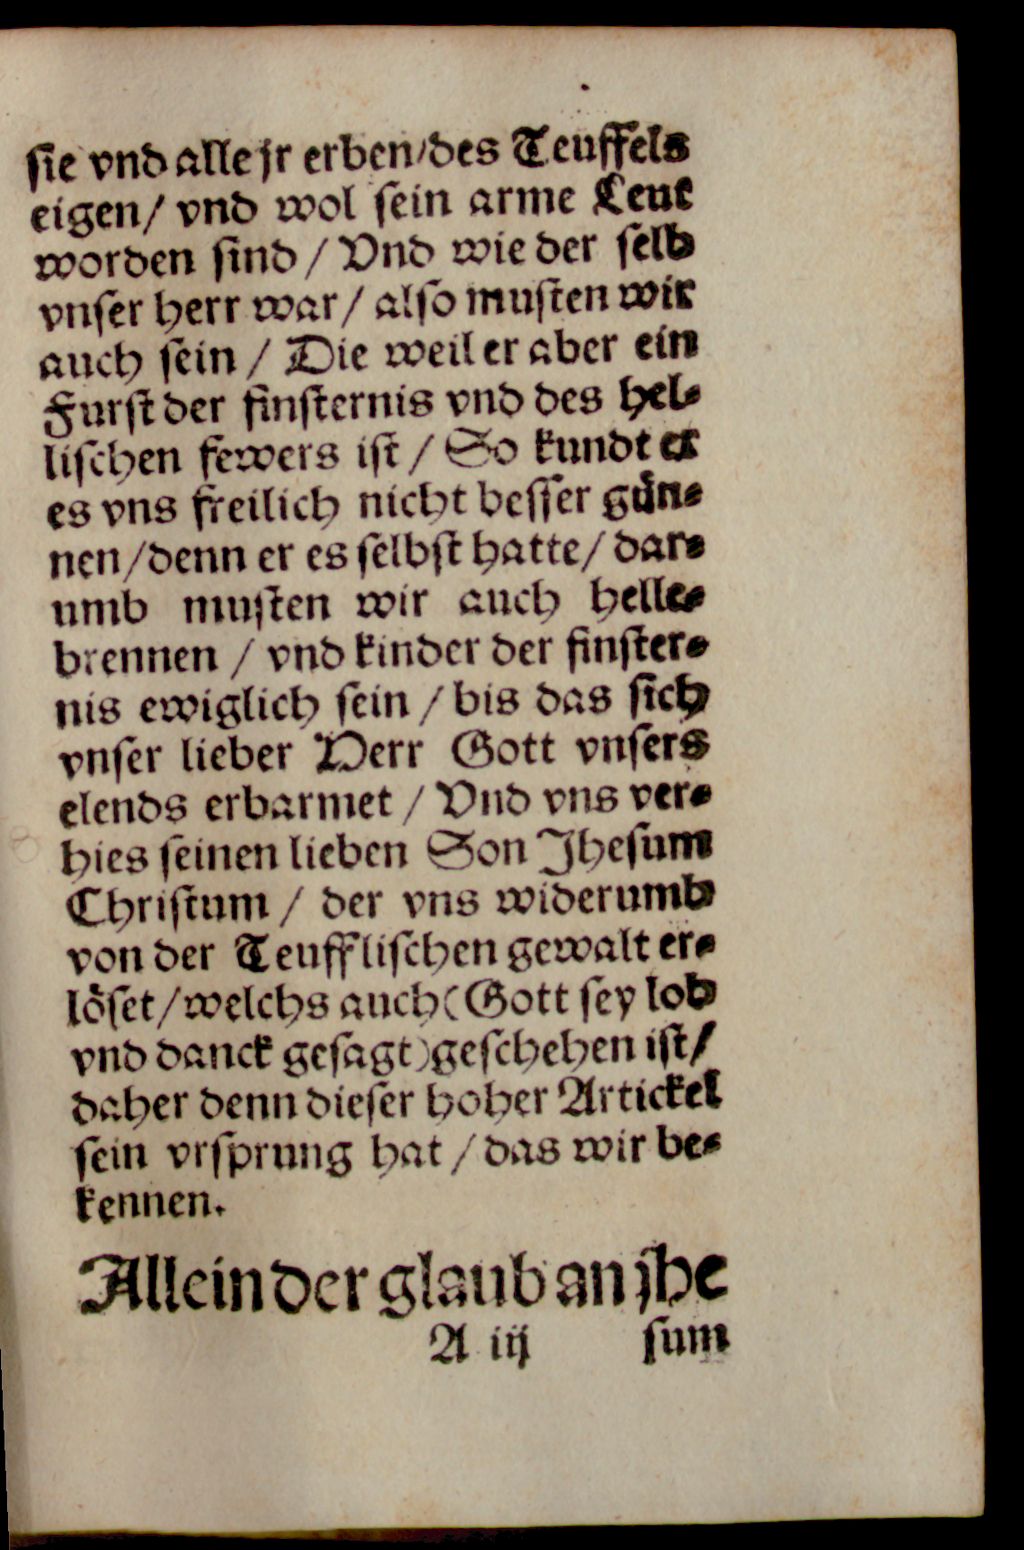 sie vnd alle jr erben/des Teuffels
eigen/ vnd wol sein arme Leut
worden sind / Vnd wie der selb
vnser herr war/ also musten wir
auch sein / Die weil er aber ein
Furst der finsternis vnd des hel⸗
lischen fewers ist / So kundt er
es vns freilich nicht besser gün⸗
nen/denn er es selbst hatte/ dar⸗
umb musten wir auch helle⸗
brennen / vnd kinder der finster⸗
nis ewiglich sein / bis das sich
vnser lieber Herr Gott vnsers
elends erbarmet / Vnd vns ver⸗
hies seinen lieben Son Jhesum
Christum / der vns widerumb
von der Teufflischen gewalt er⸗
löset/welchs auch (Gott sey lob
vnd danck gesagt) geschehen ist/
daher denn dieser hoher Artickel
sein vrsprung hat / das wir be⸗
kennen.
Allein der glaub an jhe
A iij sum